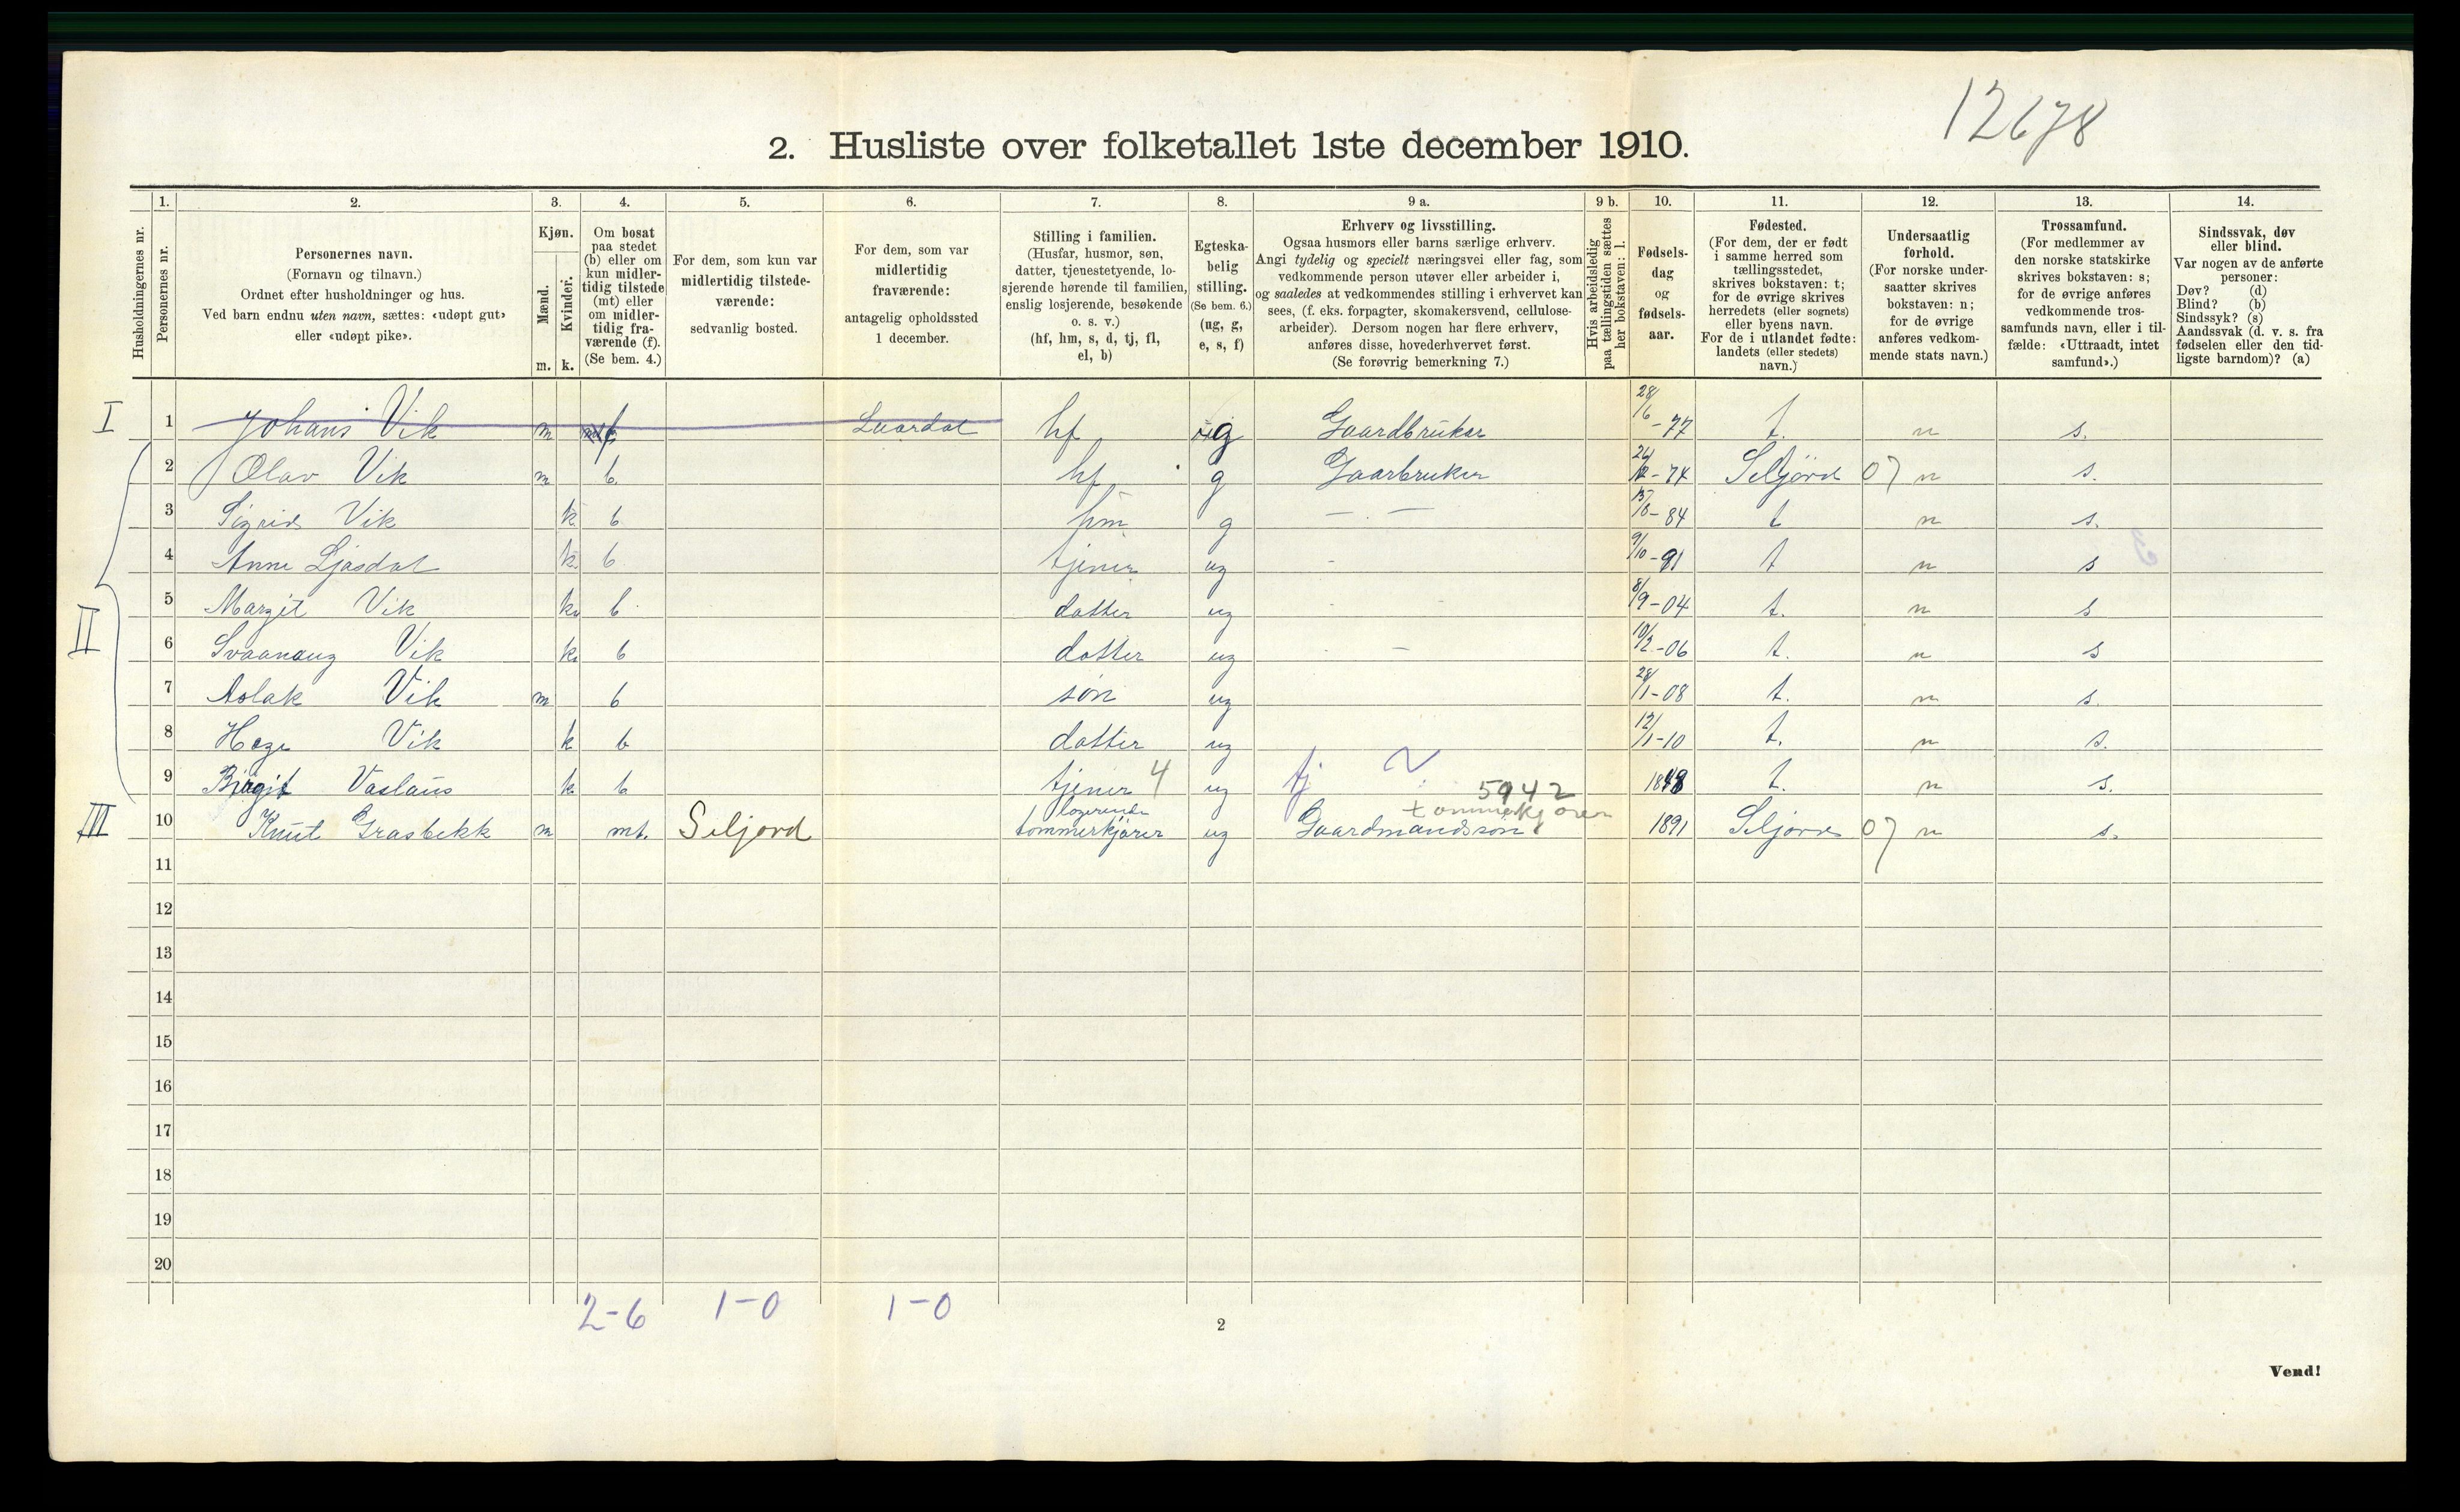 12678
2. Husliste over folketallet 1ste december 1910.
Husholdningernes nr.
1. Personernes nr.
2. Personernes navn.
(Fornavn og tilnavn.)
Ordnet efter husholdninger og hus.
Ved barn endnu uten navn, sættes: «udøpt gut»
eller «udøpt pike».
3. Kjøn.
Mænd. m.
Kvinder. k.
4. Om bosat
paa stedet
(b) eller om
kun midler-
tidig tilstede
(mt) eller
om midler-
tidig fra-
værende (f).
(Se bem. 4.)
5. For dem, som kun var
midlertidig tilstede-
værende:
sedvanlig bosted.
6. For dem, som var
midlertidig
fraværende:
antagelig opholdssted
1 december.
7. Stilling i familien.
(Husfar, husmor, søn,
datter, tjenestetyende, lo-
sjerende hørende til familien,
enslig losjerende, besøkende
o. s. v.)
(hf, hm, s, d, tj, fl,
el, b)
8. Egteska-
belig
stilling.
(Se bem. 6.)
(ug, g,
e, s, f)
9 a. Erhverv og livsstilling.
Ogsaa husmors eller barns særlige erhverv.
Angi tydelig og specielt næringsvei eller fag, som
vedkommende person utøver eller arbeider i,
og saaledes at vedkommendes stilling i erhvervet kan
sees, (f. eks. forpagter, skomakersvend, cellulose-
arbeider). Dersom nogen har flere erhverv,
anføres disse, hovederhvervet først.
(Se forøvrig bemerkning 7.)
9 b. Hvis arbeidsledig
paa tællingstiden sættes
her bokstaven: l.
10. Fødsels-
dag
og
fødsels-
aar.
11. Fødested.
(For dem, der er født
i samme herred som
tællingsstedet,
skrives bokstaven: t;
for de øvrige skrives
herredets (eller sognets)
eller byens navn.
For de i utlandet fødte:
landets (eller stedets)
navn.)
12. Undersaatlig
forhold.
(For norske under-
saatter skrives
bokstaven: n;
for de øvrige
anføres vedkom-
mende stats navn.)
13. Trossamfund.
(For medlemmer av
den norske statskirke
skrives bokstaven: s;
for de øvrige anføres
vedkommende tros-
samfunds navn, eller i til-
fælde: «Uttraadt, intet
samfund».)
14. Sindssvak, døv
eller blind.
Var nogen av de anførte
personer:
Døv? (d)
Blind? (b)
Sindssyk? (s)
Aandssvak (d. v. s. fra
fødselen eller den tid-
ligste barndom)? (a)
I 1 Johans Vik m f Laardal hf g Gaardbruker 28/6-77 t. n s.
II 2 Olav Vik m b. hf g Gaarbruker -74 Seljord 07 n s.
3 Sigrid Vik k b hm g — — -84 t n s.
4 Anne Ljosdal k b tjener ug - 9/10-91 t n s
5 Margit Vik k b datter ug 8/9-04 t. n s
6 Svaanaug Vik k. b datter ug - — 10/2-06 t. n s
7 Aslak Vik m b søn ug 28/1-08 t. n s.
8 Hæge Vik k b datter ug 12/1-10 t. n s.
9 Birgit Vaslaus k b tjener 4 ug tj 1848 t. n s.
5942
III 10 Knut Grasbekk m mt. Seljord logerende tømmerkjører ug Gaardmandssøn tømmerkjører 1891 Seljord 07 n s.
11
12
13
14
15
16
17
18
19
20
2-6 1-0 1-0
2
Vend!